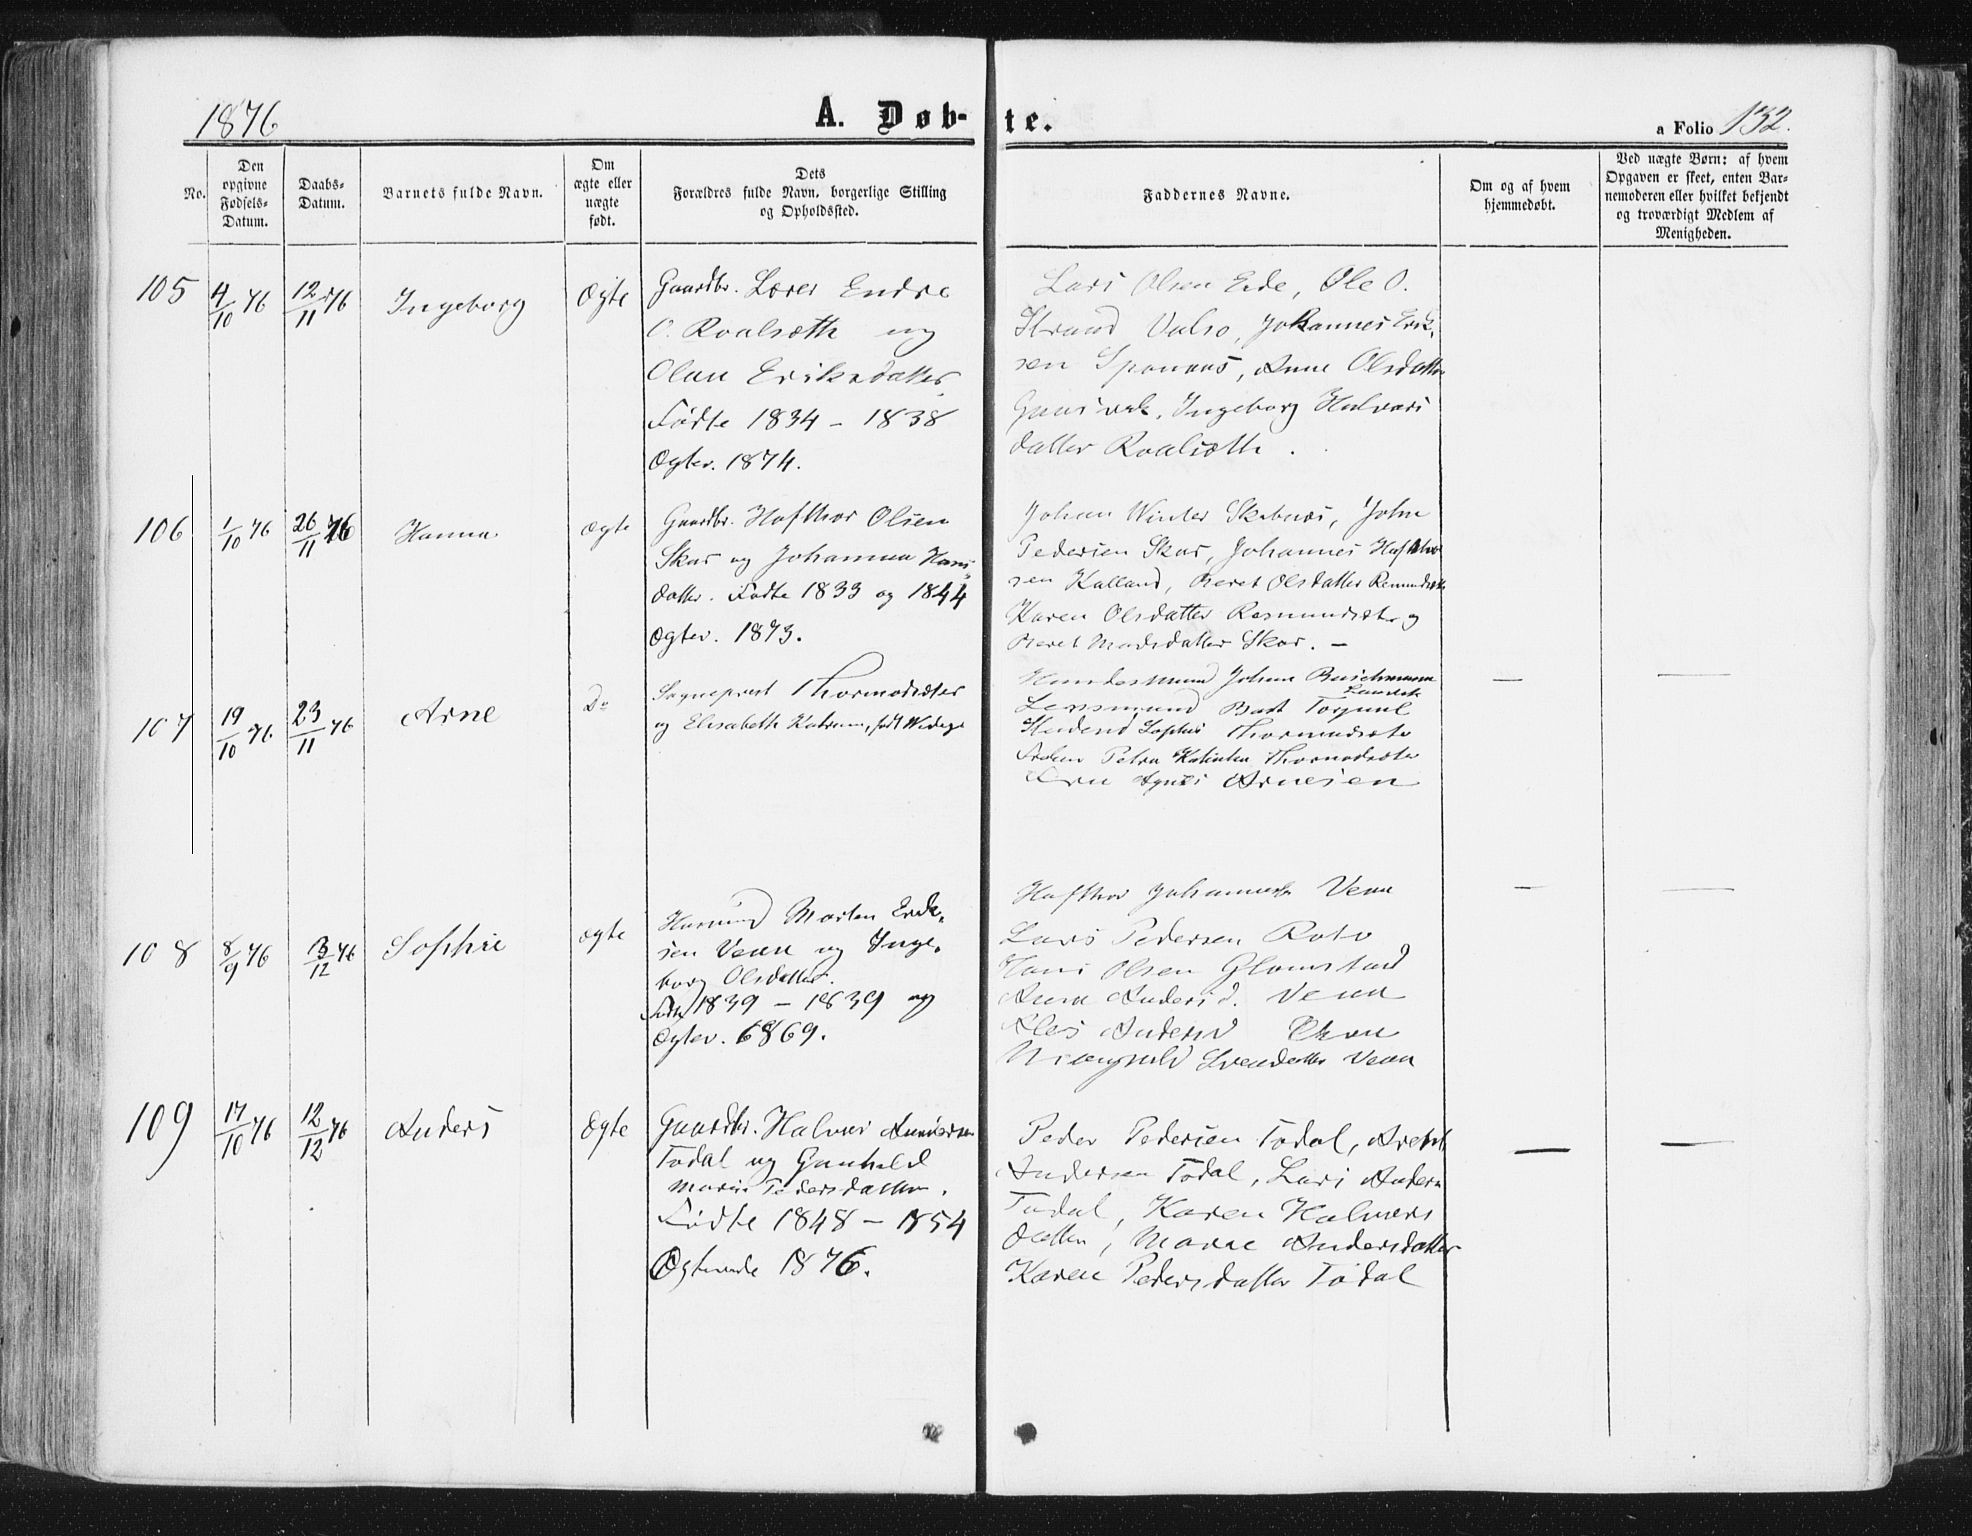 1876
A. Døb-te.
a Folio 132.
No.
Den opgivne Fødsels-Datum.
Daabs-Datum.
Barnets fulde Navn.
Om ægte eller uægte født.
Dets Forældres fulde Navn, borgerlige Stilling og Opholdssted.
Faddernes Navne.
Om og af hvem hjemmedøbt.
Ved uægte Børn: af hvem Opgaven er skeet, enten Barnemoderen eller hvilket bekjendt og troværdigt Medlem af Menigheden.
105 4/10 76 12/11 76 Ingeborg Ægte
Gaardbr. Lærer Endre
O. Roalsæth og
Olau Eriksdatter
Fødte 1834 – 1838
Ægtev. 1874.
Lars Olsen Ole O.
Strand Valsø, Johannes Erik-
sen Anne Olsdatter
Ingeborg Halvors
datter Roalsæth.
106 1/10 76 26/11 76 Hanna ægte
Gaardbr. Hafthor Olsen
Skar og Johanna Hans
datter. Fødte 1833 og 1844
Ægtev. 1873.
Johan Winter John
Pedersen Skar, Johannes Hafthor
sen Kalland, Beret Olsdatter
Karen Olsdatter og
Beret Madsdatter Skar. –
107 19/10 76 23/11 76 Arne Do
Sogneprest Thormodsæter
og Elisabeth Katrine, født
Handelsmand Johan Buschmann
Lensmand
Student Sophus Thormodsæter
Frøken Petra Thormodsæter
Fru Agnes Arnesen
— —
108 8/9 76 3/12 76 Sophie ægte
Husmand Morten Erik-
sen Venn og Inge-
borg Olsdatter.
Fødte 1839 – 1839 og
Ægtev. 1869.
Hafthor Johannes Venn
Lars Pedersen
Hans Olsen Glomstad
Anne Anders d. Venn
Svendatter Venn
— —
109 17/10 76 12/12 76 Anders Ægte
Gaardbr. Halvor Andersen
Todal og Gunhild
Marie Pedersdatter.
Fødte 1848 – 1854
Ægteviede 1876.
Peder Pedersen Todal, Arent
Andersen Todal, Lars Anders
Todal, Karen Halvors
datter, Marie Andersdatter
Karen Pedersdatter Todal
— —